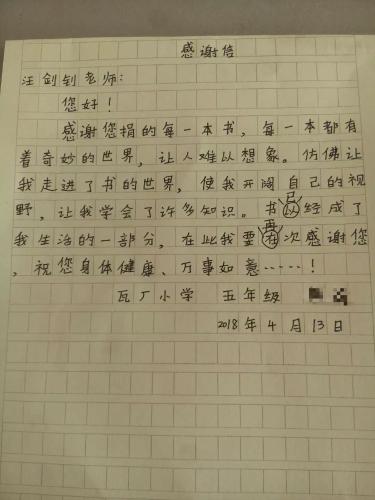 感谢信
汪剑钊老师：
您好！
感谢您捐的每一本书，每一本都有
着奇妙的世界，让人难以想象。仿佛让
我走进了书的世界，使我开阔自己的视
野，让我学会了许多知识。书已经成了
我生活的一部分，在此我要再次感谢您
，祝您身体健康、万事如意……！
瓦厂小学 五年级
2018年4月13日